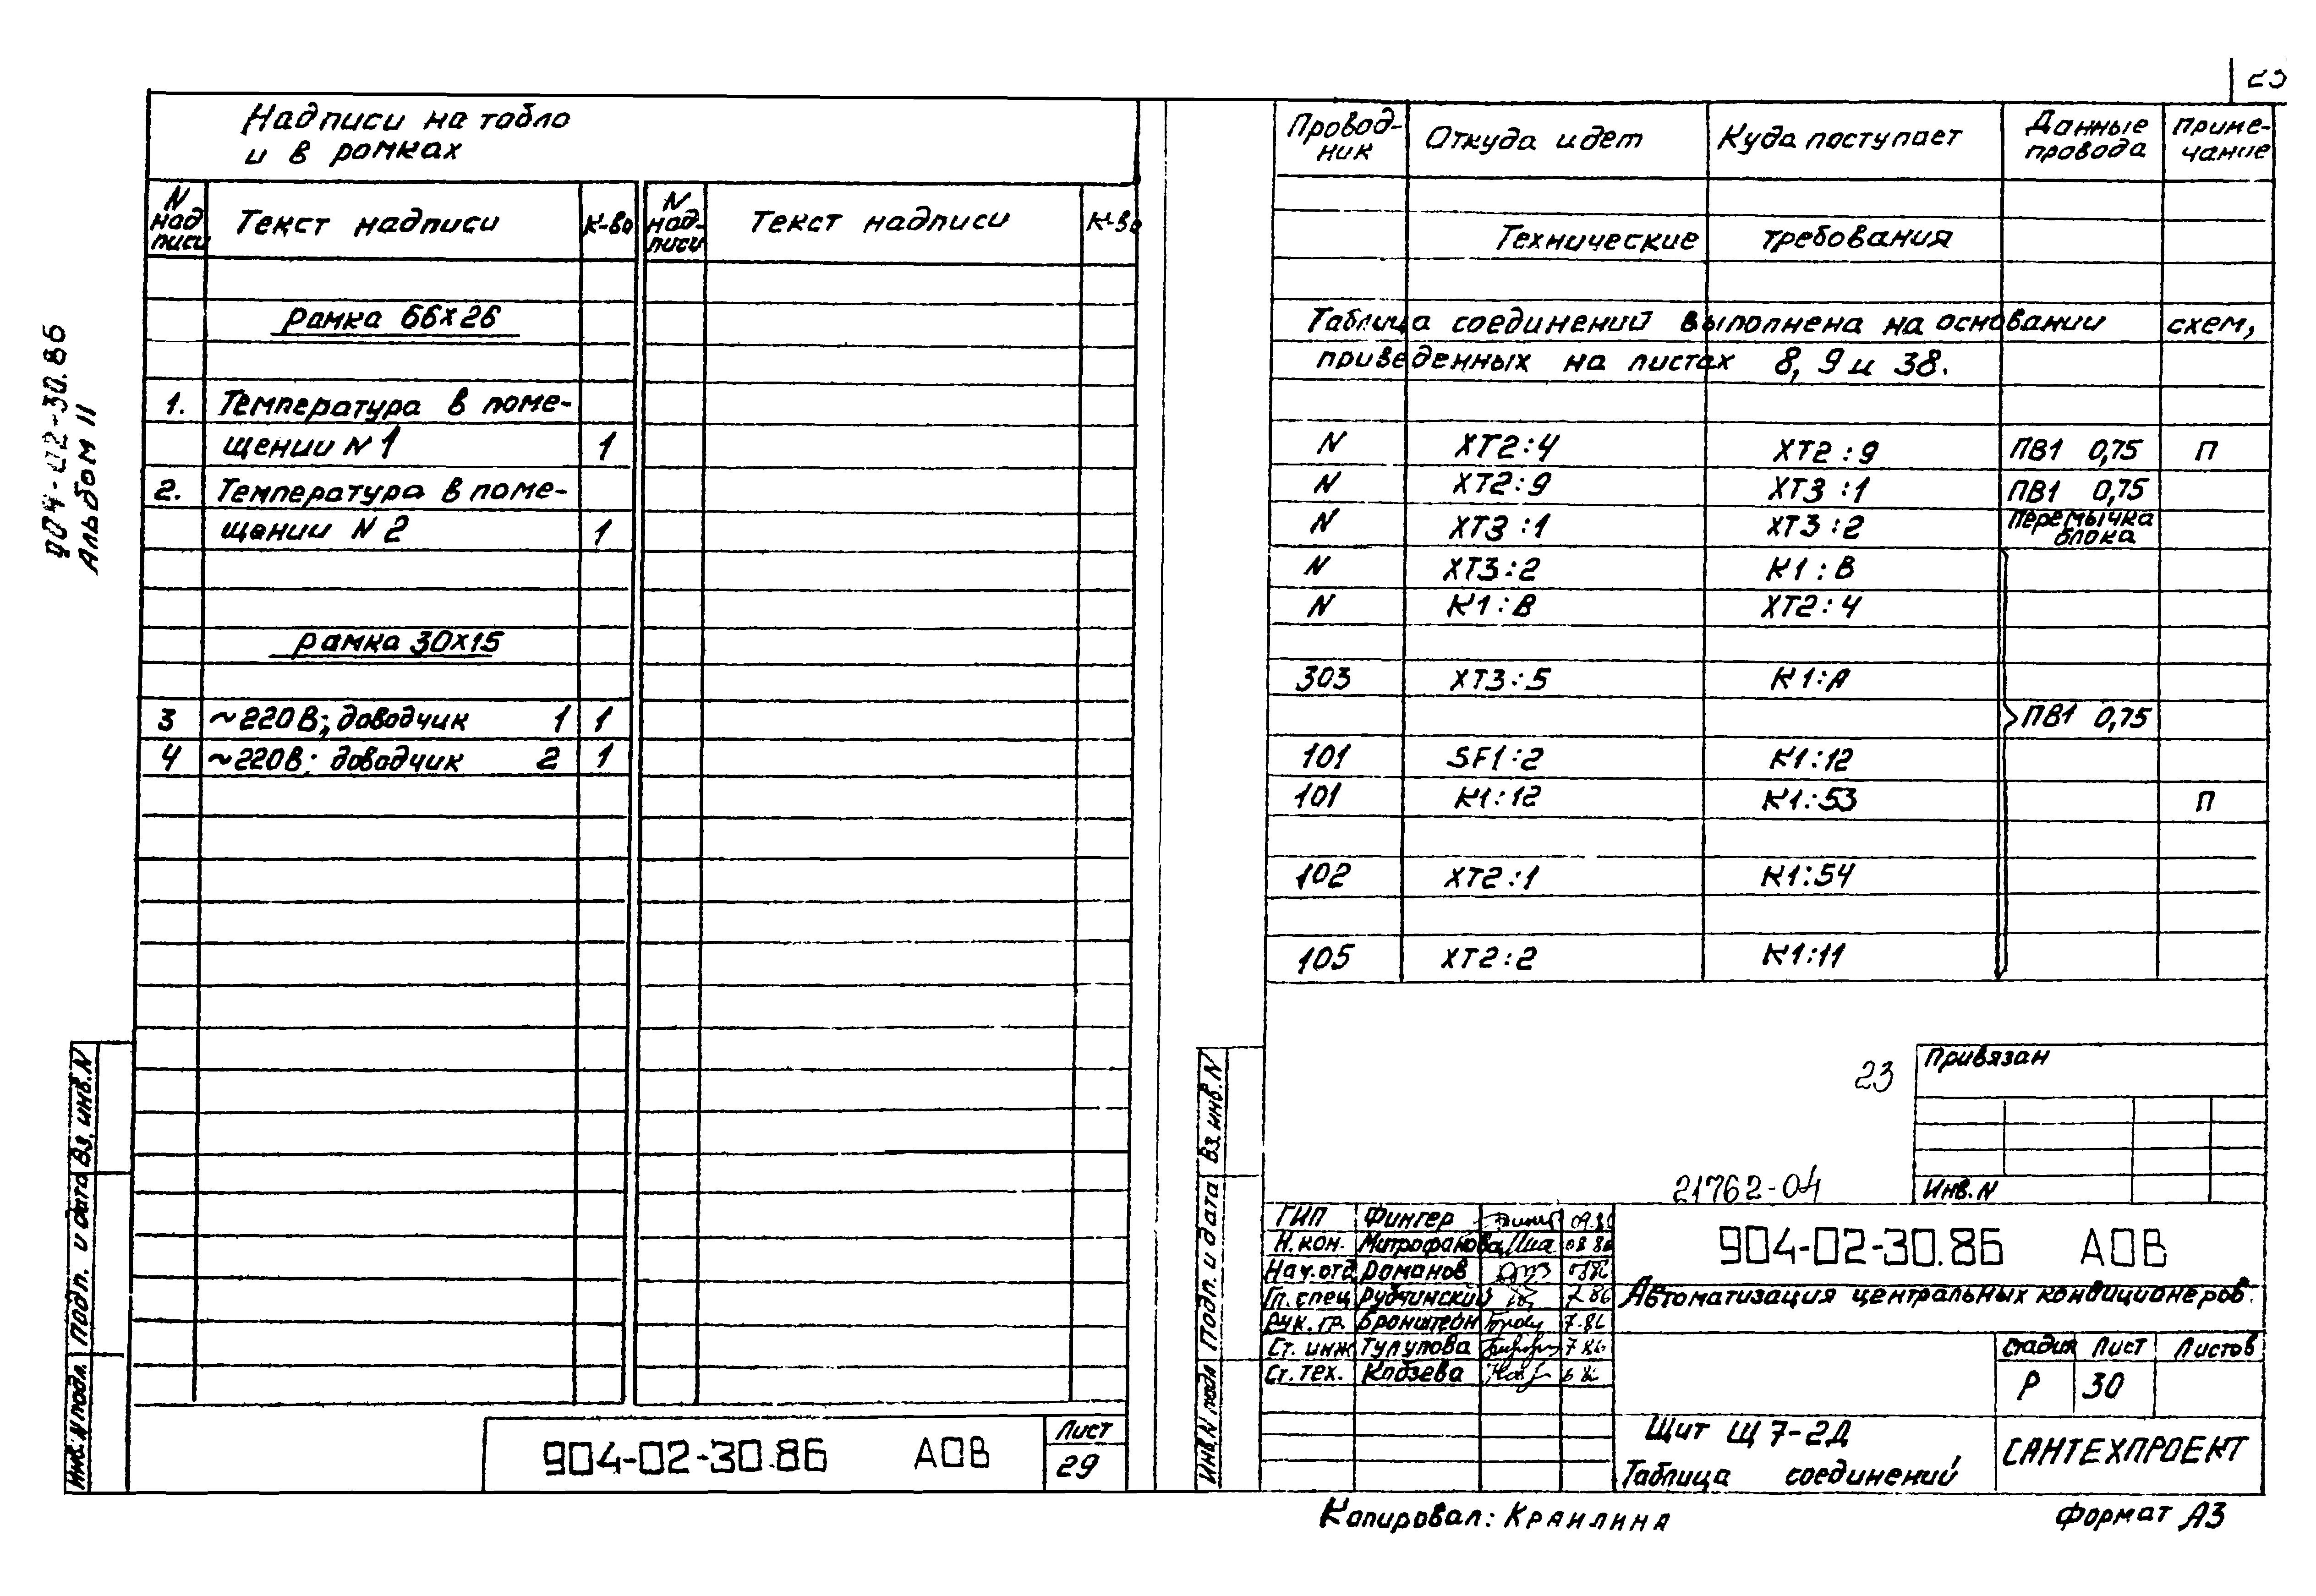 23
904-02-30.86
Альбом II
Надписи на табло
и в рамках
N надписи Текст надписи К-во N надписи Текст надписи К-во
Рамка 66х26
1. Температура в поме-
щении N 1 1
2. Температура в поме-
щении N 2 1
рамка 30х15
3 ~220В; доводчик 1 1
4 ~220В; доводчик 2 1
Инв. N подл. Подп. и дата Вз. инв. N
904-02-30.86 АОВ
Лист
29
Провод-ник Откуда идет Куда поступает Данные провода Приме-чание
Технические требования
Таблица соединений выполнена на основании схем,
приведенных на листах 8, 9 и 38.
N XT2:4 XT2:9 ПВ1 0,75 П
N XT2:9 XT3:1 ПВ1 0,75
N XT3:1 XT3:2 Перемычка блока
N XT3:2 K1:B
N K1:B XT2:4
303 XT3:5 K1:A
ПВ1 0,75
101 SF1:2 K1:12
101 K1:12 K1:53 П
102 XT2:1 K1:54
105 XT2:2 K1:11
23
Привязан
Инв. N
21762-04
Инв. N подл Подп. и дата Вз. инв. N
ГИП Фингер 09.86
Н. кон. Митрофанова 08 86
Нач. отд Романов
Гл. спец Рубчинский 7 86
Рук. гр. Бронштейн 7.86
Ст. инж Тулупова 7 86
Ст. тех. Кобзева 6 86
904-02-30.86 АОВ
Автоматизация центральных кондиционеров.
Стадия Лист Листов
Р 30
Щит Щ 7-2Д
Таблица соединений
САНТЕХПРОЕКТ
Копировал: Кранлина
Формат А3